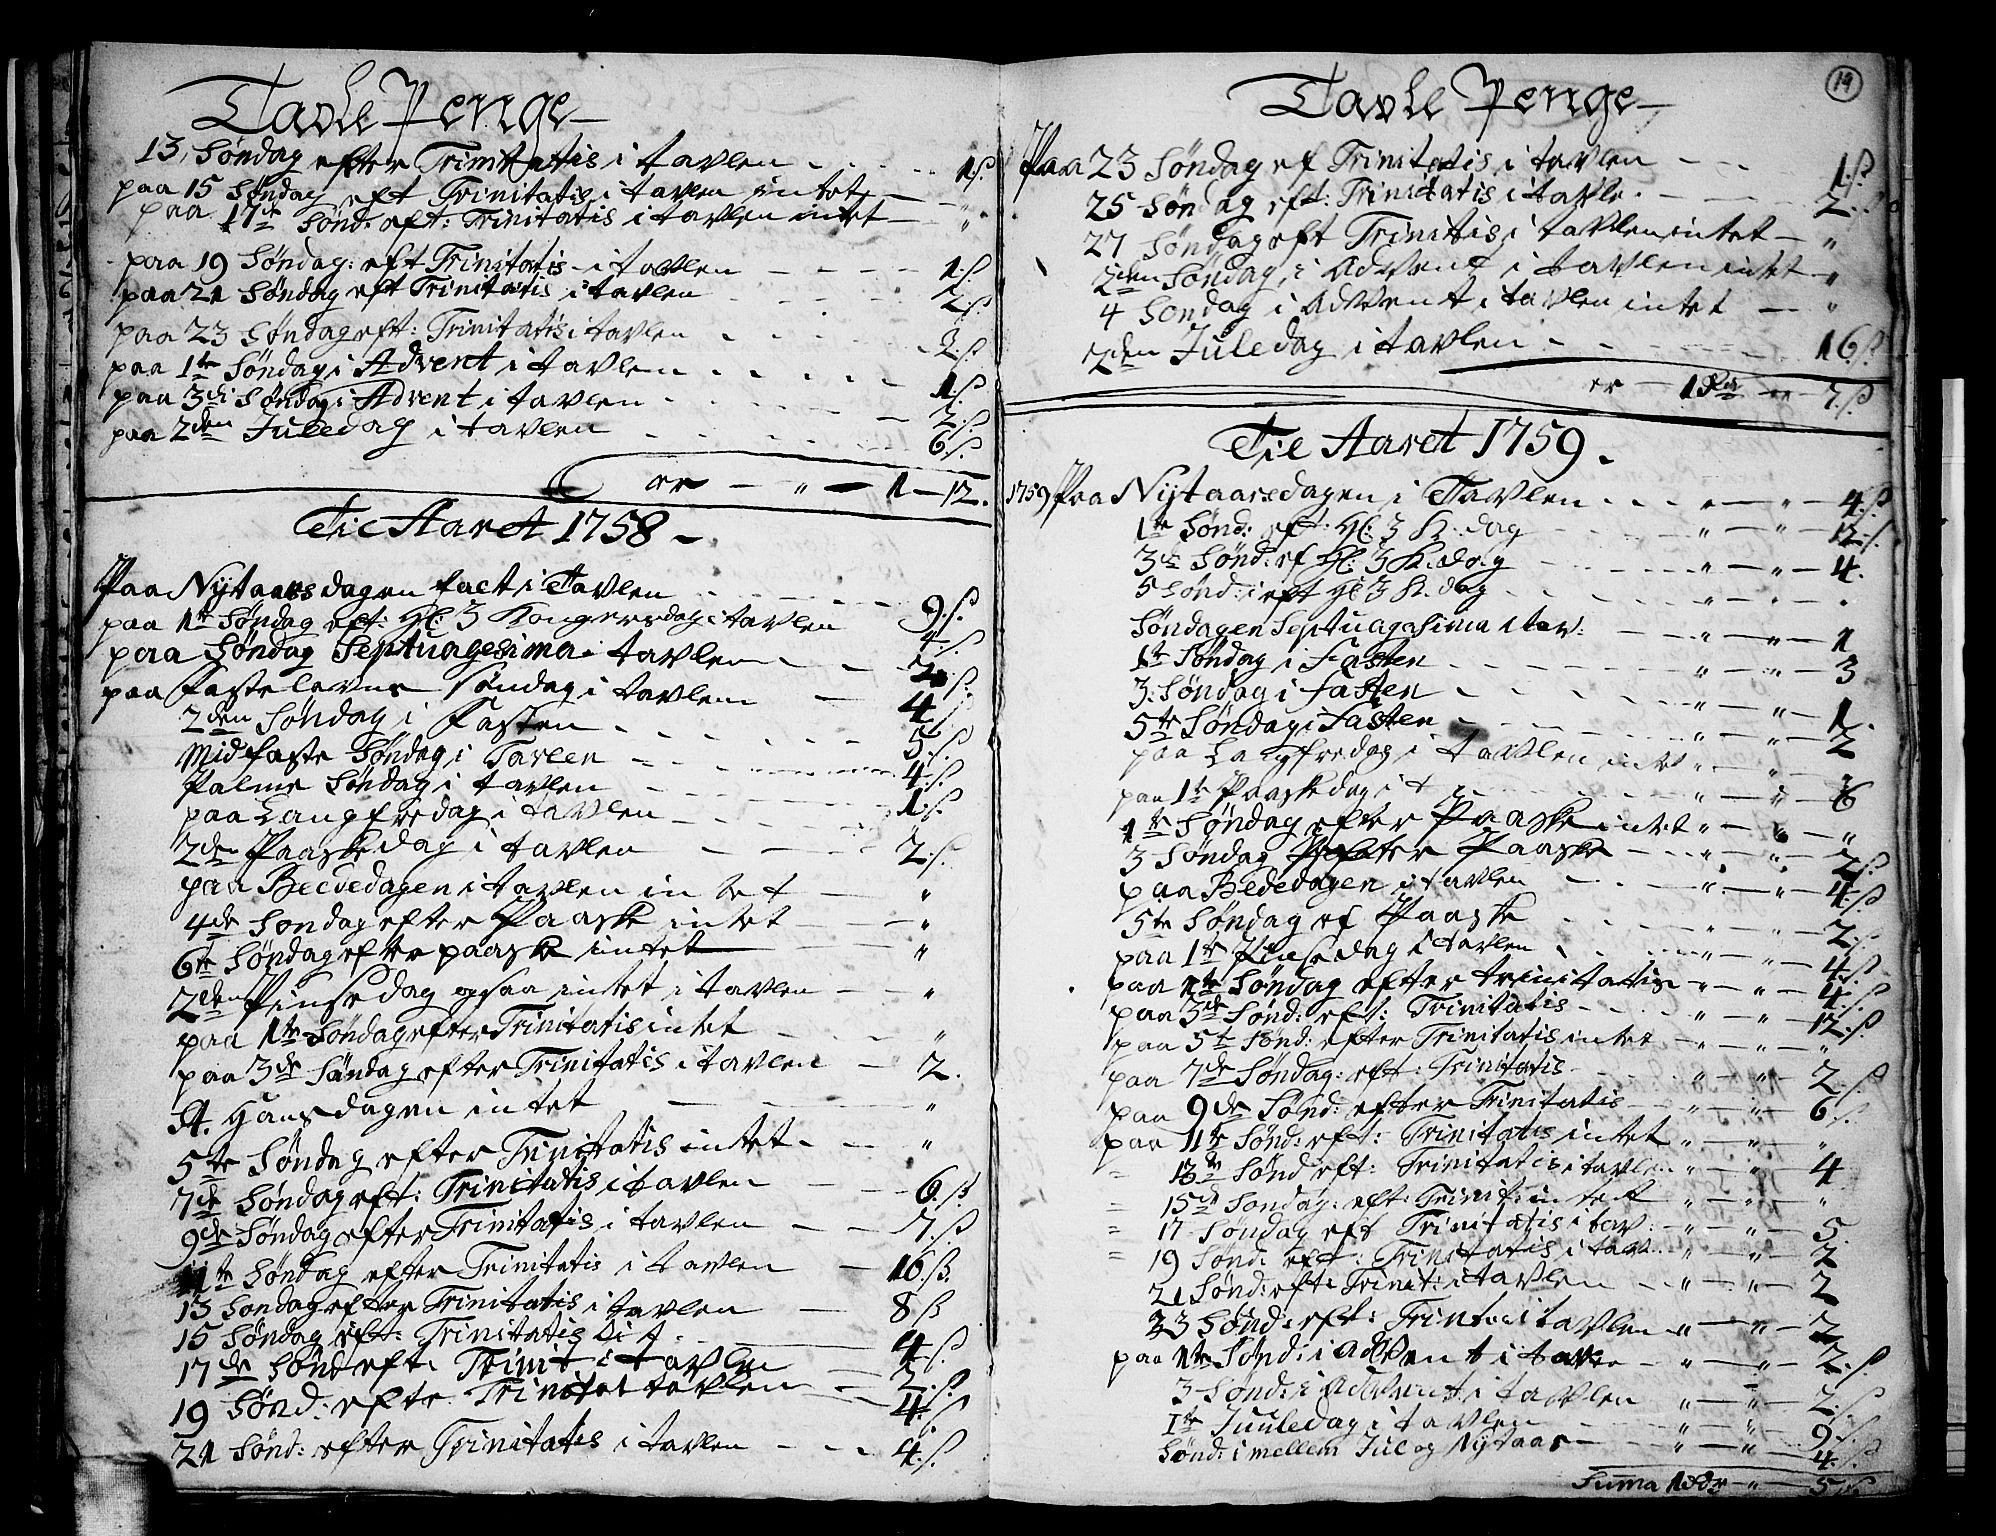 Tavle Penge
13, Søndag efter Trinitatis i tavlen - - - 1 ß
paa 15 Søndag eft Trinitatis i tavlen intet - "
paa 17de Sønd: eft: Trinitatis i tavlen intet - "
paa 19 Søndag: eft Trinitatis i tavlen - - - 1 ß
paa 21 Søndag eft Trinitatis i tavlen - - - 2 ß
paa 23 Søndag eft: Trinitatis i tavlen - - - 2 ß
paa 1te Søndag i Advent i tavlen - - - 1 ß
paa 3di Søndag i Advent i tavlen - - - 2 ß
paa 2den Juledag i tavlen - - - 6 ß
er - " - 1 - 12.
Til Aaret 1758 -
Paa Nytaarsdagen falt i Tavlen - - - 9 ß
paa 1te Søndag eft: Hl: 3 Kongersdag i tavlen 4 ß
paa Søndag Septuagesima i tavlen - - 2 ß
paa Fastelavns Søndag i tavlen - 4 ß
2den Søndag i Fasten - - - 5 ß
Midfaste Søndag i Tavlen - - - 4 ß
Palme Søndag i tavlen - - - 1 ß
paa Langfredag i tavlen - - -
2den Paaskedag i tavlen - - - 2 ß
paa Bededagen i tavlen intet - "
4de Søndag efter Paaske intet - "
6te Søndag efter paaske intet - "
2den Pinsedag ogsaa intet i tavlen - "
paa 1te Søndag efter Trinitatis intet - "
paa 3de Søndag efter Trinitatis i tavlen - 2.
St. Hansdagen intet - - "
5te Søndag efter Trinitatis intet - - "
7de Søndag eft: Trinitatis i tavlen - - 6 ß
9de Søndag efter Trinitatis i tavlen - - 7 ß
11te Søndag efter Trinitatis i tavlen - 16 ß
13 Søndag efter Trinitatis i tavlen - 8 ß
15 Søndag eft: Trinitatis - - 4 ß
17de Sønd eft: Trinit i tavlen - 2 ß
19 Sønd: efte Trinitat tavlen - 4 ß
21 Sønd: efter Trinitatis i tavlen - - 4 ß
19
Tavle Penge
Paa 23 Søndag ef Trinitatis i tavlen - - 1 ß
25 Søndag eft: Trinitatis i tavle - - - 2 ß
27 Søndag eft Trinitatis i tavlen intet - "
2den Søndag i Advent i tavlen intet - "
4 Søndag i Advent i tavlen intet - "
2den Juledag i tavlen - - - 16 ß
er - 1 Rdr - 7 ß
Til Aaret 1759.
1759 Paa Nytaarsdagen i Tavlen - - " - " - 4 ß
1te Sønd: eft: Hl: 3 K. dag - - " - " - 12 ß
3de Sønd: ef Hl: 3 K. dag - - " - " - 4.
5 Sønd: eft Hl 3 K. dag - - " - " -
Søndagen Septuagesima i tav: - - " - " - 1
1te Søndag i Fasten - - " - " - 3
3: Søndag i fasten - - " - " - 1.
5te Søndag i Fasten - - " - " - 2
paa Langfredag i tavlen intet " - " -
paa 1te Paaskedag i t - - " - " - 6
1te Søndag efter Paaske intet " - " - "
3 Søndag efter Paaske - - " - " - 2 ß
paa Bededagen i tavlen - - " - " - 4 ß
5te Søndag ef Paaske - - " - " - 2 ß
paa 1te Pinsedag i tavlen - - " - " - 4 ß
paa 1te Søndag efter trinitatis - " - " - 4 ß
paa 3de Sønd: eft: Trinitatis - - " - " - 12 ß
paa 5te Sønd: efter Trinitatis intet - " - " - "
paa 7de Søndag: eft: Trinitatis - - " - " - 2 ß
paa 9de Sønd: efter Trinitatis - " - " - 6 ß
paa 11te Sønd: eft: Trinitatis intet " - " - "
= 13de Sønd eft: Trinitatis i tavlen " - " - 4
= 15 Søndag: eft: Trinit: intet " - " - "
= 17 Søndag eft Trinitatis i tav: " - " - 5.
= 19 Sønd: eft: Trinitatis i tavl. " - " - 2
21 Sønd: eft: Trinit: i tavlen - " - " - 2
23 Sønd: eft: Trinitat i tavlen " - " - 2
paa 1te Sønd: i Advent i tavle - " - " - 2 ß
3 Sønd: i Advent i tavlen " - " - 2 ß
1te Juuledag i tavlen - - " - " - 9 ß
Sønd: i mellem Jul og Nytaar - " - " - 4 ß
Suma 1 Rdr - " - 5 ß